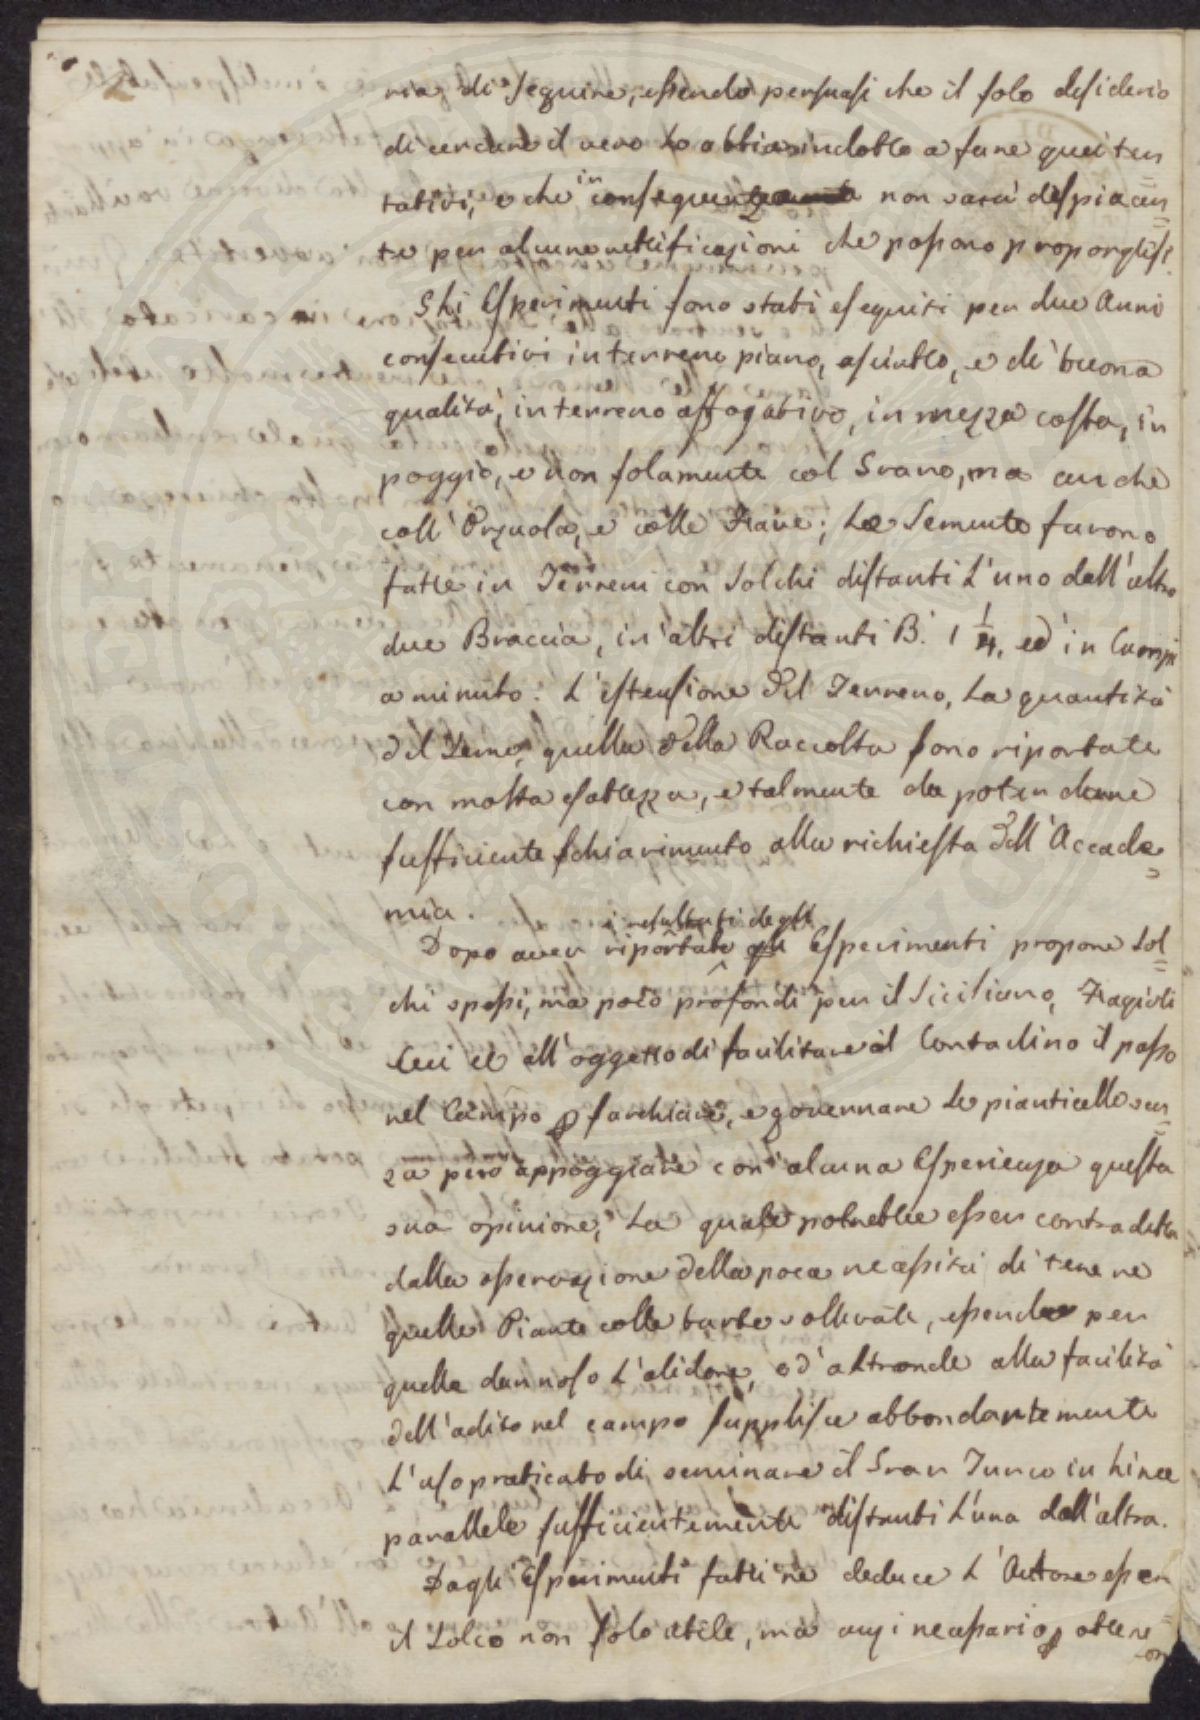 ria di seguire, essendo persuasi che il solo desiderio
di cercare il vero lo abbia indotto a fare quei ten=
tativi, e che in consequenza non sarà dispiacen=
te per alcune rettificazioni che possono proporglisi.
Gli Esperimenti sono stati eseguiti per due Anni
consecutivi in terreno piano, asciutto, e di buona
qualità, in terreno affogativo, in mezza costa, in
poggio, e non solamente col Grano, ma anche
coll'Orzuola, e colle Fave; Le Semente furono
fatte in Terreni con Solchi distanti l'uno dall'altro
due Braccia, in altri distanti B. 1 1/4, ed in Campi
a minuto. L'estensione del Terreno, la quantità
del Seme, quella della Raccolta sono riportate
con molta esatezza, e talmente da poter darne
sufficiente schiarimento alla richiesta dell'Accade=
mia.
Dopo aver riportato i resultati degli Esperimenti propone Sol=
chi spessi, ma poco profondi per il Siciliano, Fagioli
Ceci ec all'oggetto di facilitare al Contadino il passo
nel Campo p sarchiare, e governare le pianticelle sen=
za però appoggiare con alcuna Esperienza questa
sua opinione, la quale potrebbe esser contradetta
dalla osservazione della poca necessità di tenere
quelle Piante colle barbe sollevate, essendo per
quelle dannoso l'alidore, ed'altronde alla facilità
dell'adito nel campo supplisce abbondantemente
l'uso praticato di seminare il Gran Turco in linee
parallele sufficientemente distanti l'una dall'altra.
Dagli Esperimenti fatti ne deduce l'Autore esser
il Solco non solo utile, ma anzi necessario p ottene=